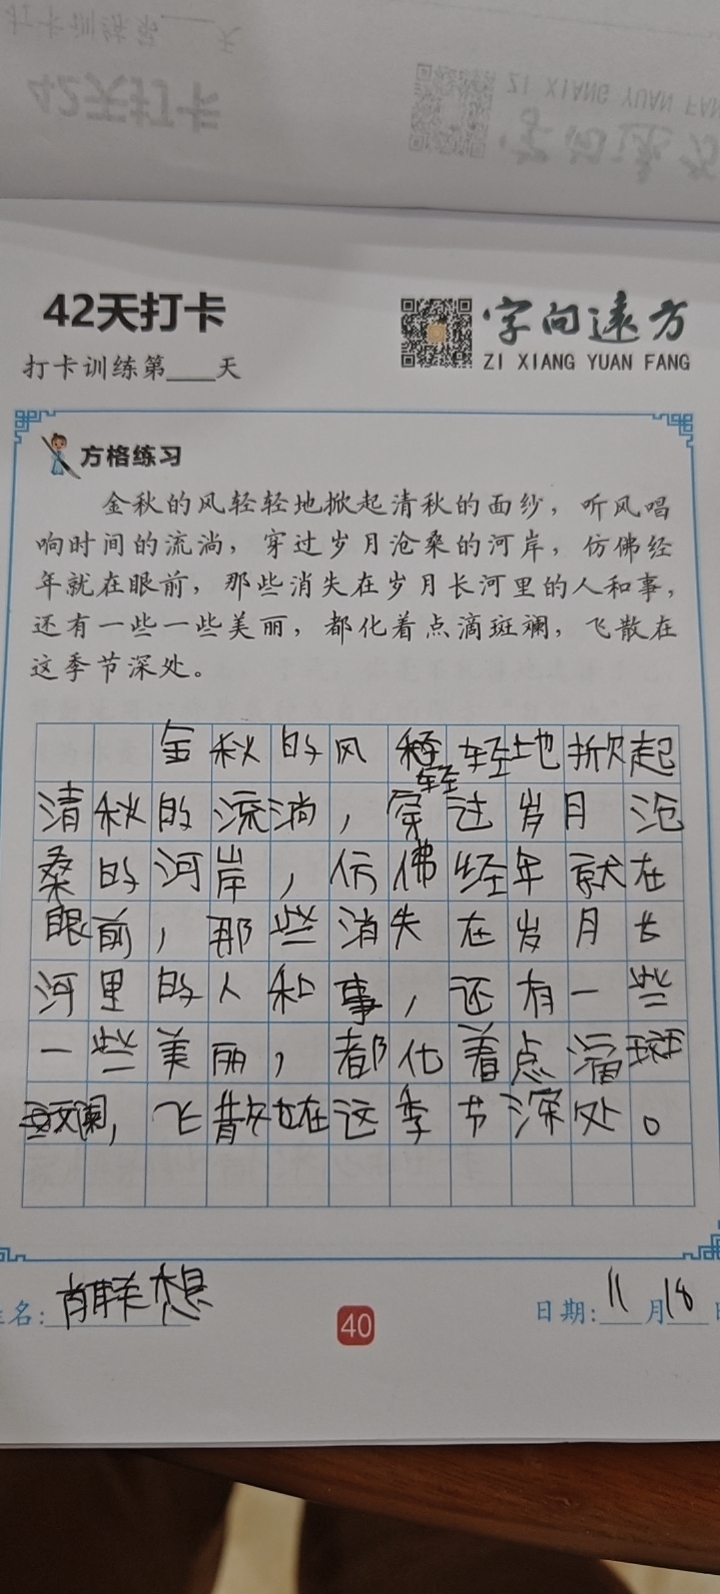 打卡训练第___天
42天打卡
ZI XIANG YUAN FAN
字向远方
42天打卡
字向远方
打卡训练第___天
ZI XIANG YUAN FANG
方格练习
金秋的风轻轻地掀起清秋的面纱，听风唱
响时间的流淌，穿过岁月沧桑的河岸，仿佛经
年就在眼前，那些消失在岁月长河里的人和事，
还有一些一些美丽，都化着点滴斑斓，飞散在
这季节深处。
金秋的风轻轻地掀起
清秋的流淌，穿过岁月沧
桑的河岸，仿佛经年就在
眼前，那些消失在岁月长
河里的人和事，还有一些
一些美丽，都化着点滴斑
斓，飞散在这季节深处。
姓名：
想
40
日期：11月18日